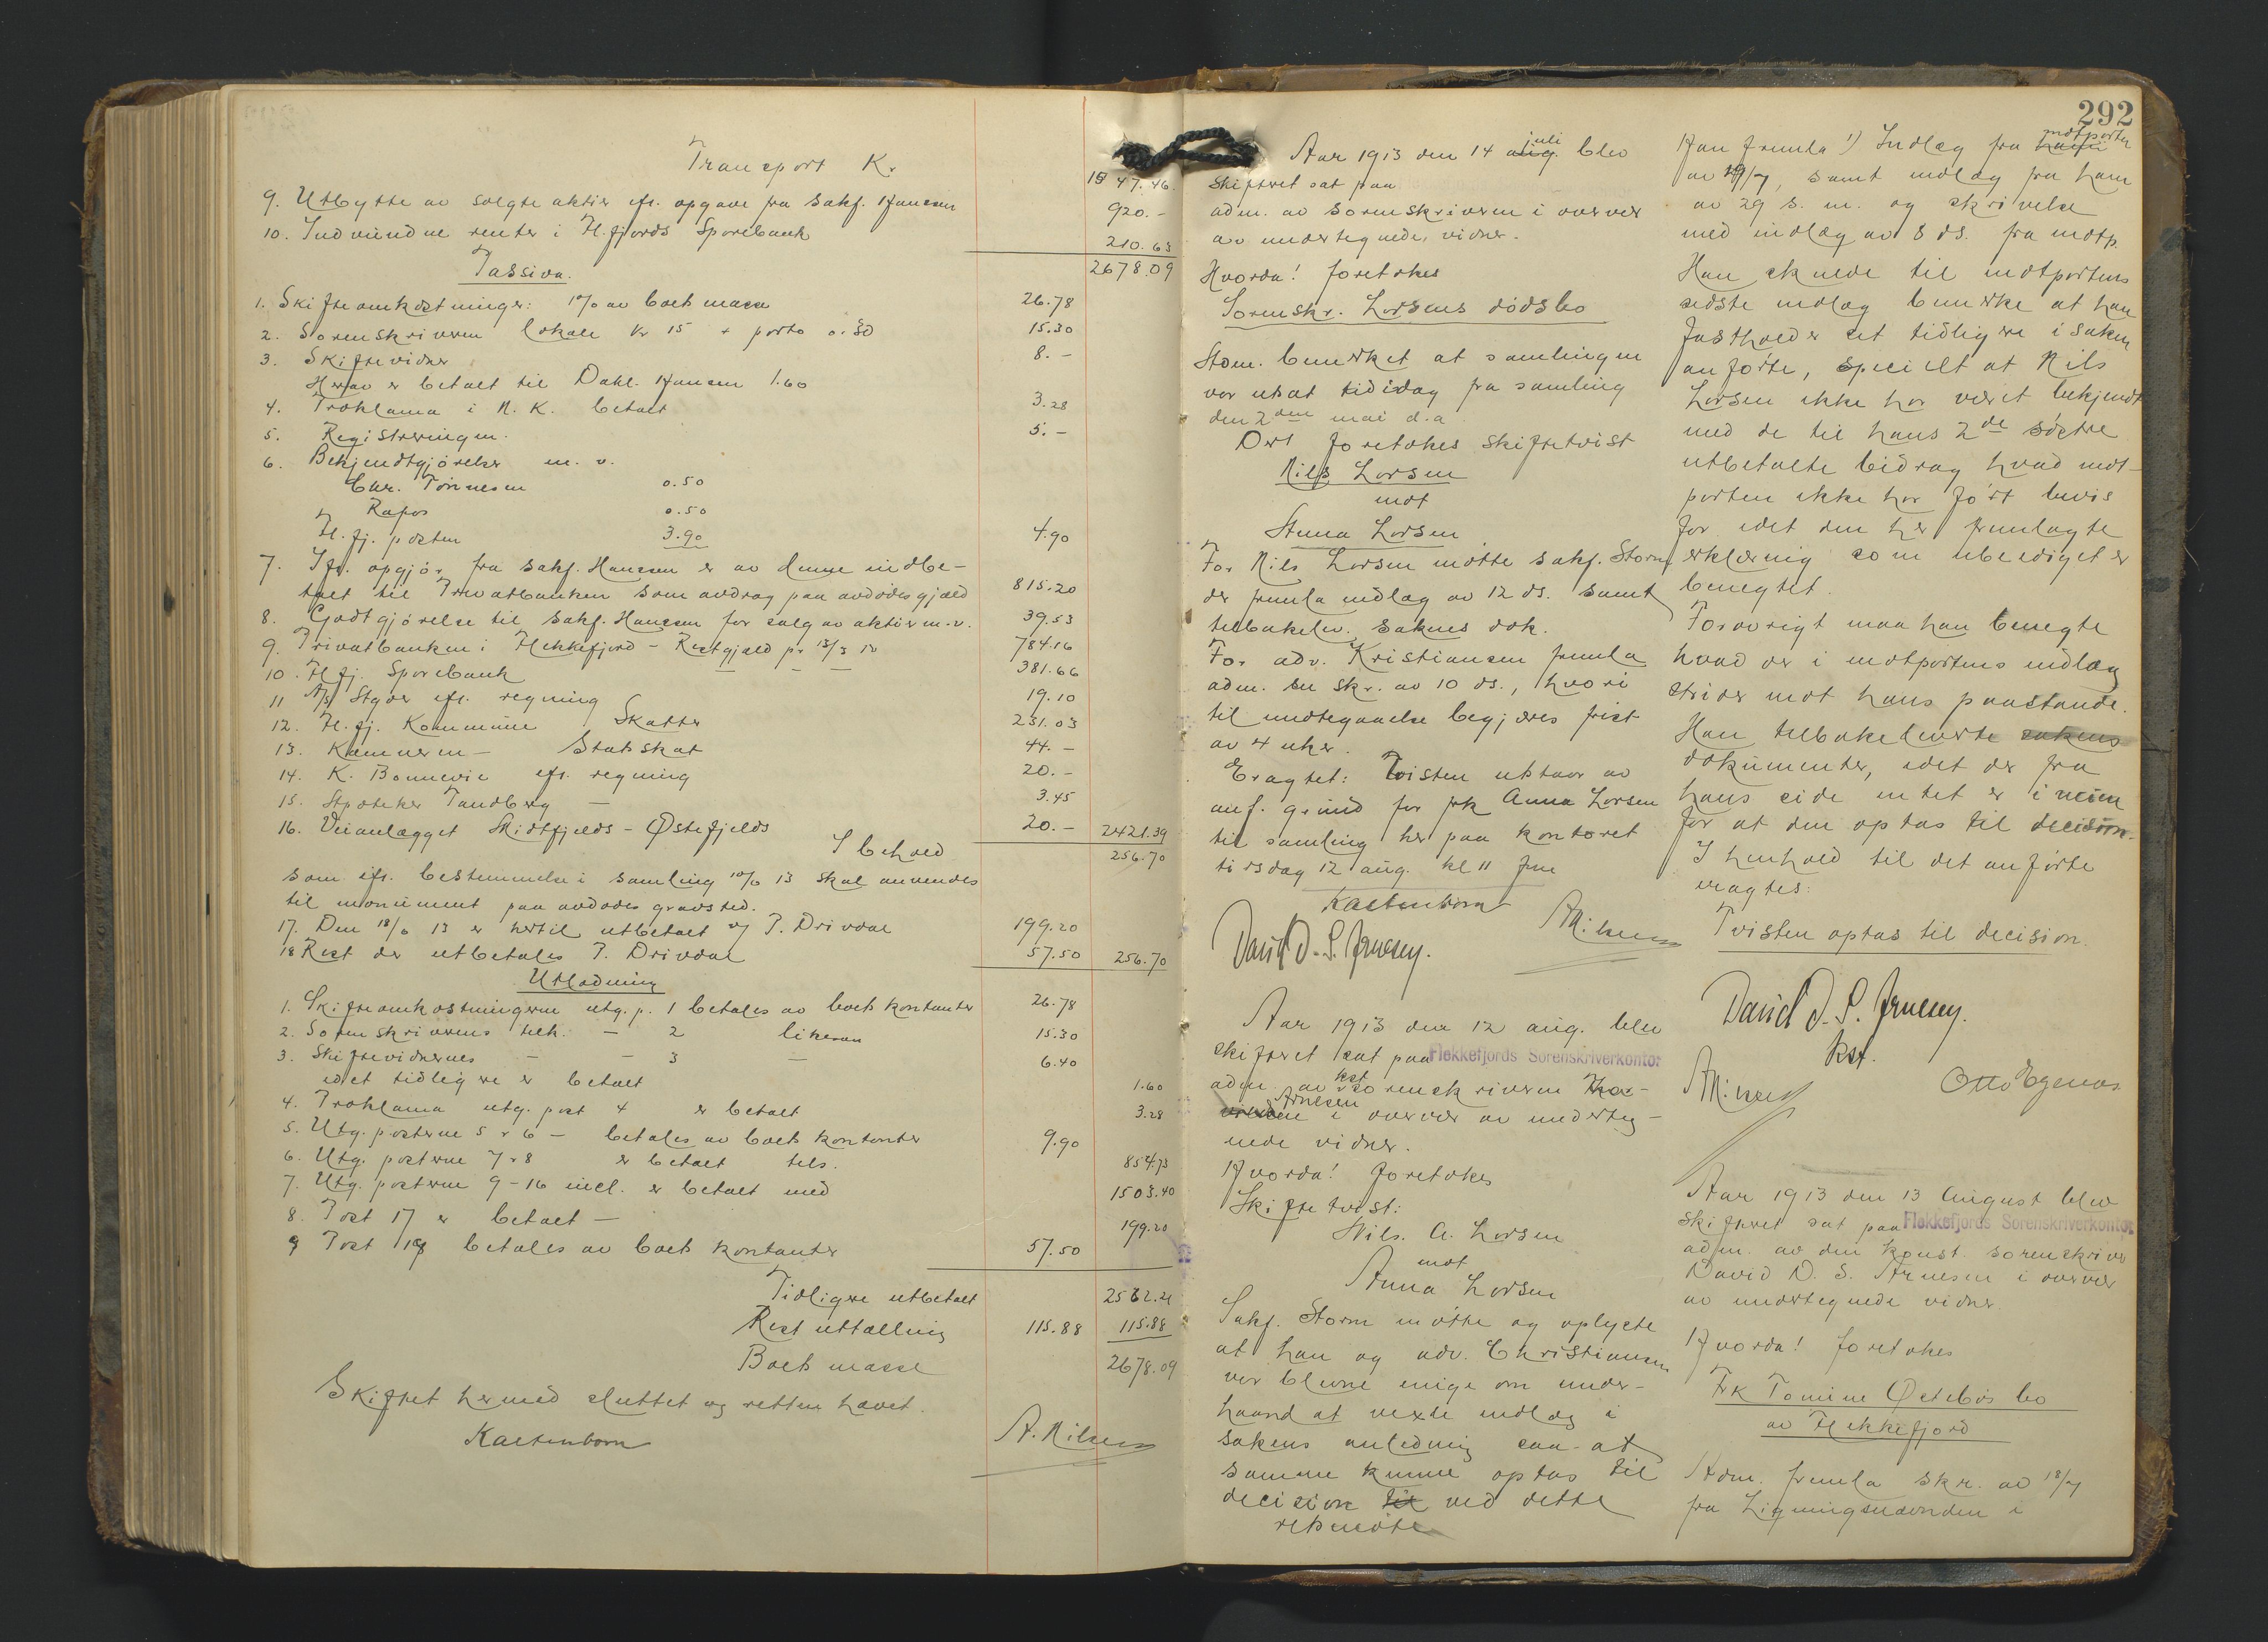 Transport Kr. 1547.46.
9. Utbytte av solgte aktier efr. opgave fra sakf. Hanssen 920.-
10. Indvundne renter i Fl.fjords Sparebank 210.63
2678.09
Passiva.
1. Skifteomkostninger: 1% av boets masse 26.78
2. Sorenskriveren lokale kr 15 + porto 0.30 15.30
3. Skiftevidner 8.-
Herav er betalt til Dahl. Hansen 1.60
4. Proklama i N. K. betalt 3.28
5. Registreringen. 5.-
6. Bekjendtgjørelser m. v.
Chr. Tönnesen 0.50
" Rafos 0.50
Fl. fj. posten 3.90 4.90
7. Ifr. opgjör fra sakf. Hanssen er av denne indbe-
talt til Privatbanken som avdrag paa avdödes gjæld 815.20
8. Godtgjörelse til sakf. Hanssen for salg av aktier m.v. 39.53
9. Privatbanken i Flekkefjord - Restgjæld pr 13/3 13 784.16
10. Fl.fj. Sparebank — — 381.66
11 A/S Styver efr. regning 19.10
12. Fl. fj. Kommune Skatter 231.03
13. Kæmneren - Statsskat 44.-
14. K. Bonnevie efr. regning 20.-
15. Apoteker Tandberg — 3.45
16. Veianlægget Midtfjelds - Østefjelds 20.- 2421.39
I behold 256.70
som efr. bestemmelse i samling 10/6 13 skal anvendes
til monument paa avdödes gravsted.
17. Den 18/6 13 er hertil utbetalt v/ P. Drivdal 199.20
18 Rest der utbetales P. Drivdal 57.50 256.70
Utlodning
1. Skifteomkostningerne utg. p. 1 betales av boets kontanter 26.78
2. Sorenskriverens tilk. — 2 likesaa 15.30
3. Skiftevidnernes — — 3 — 6.40
idet tidligere er betalt 1.60
4. Proklama utg. post 4 er betalt 3.28
5. Utg. posterne 5 & 6 - betales av boets kontanter 9.90
6. Utg. posterne 7 & 8 er betalt tils. 854.73
7. Utg. posterne 9-16 incl. er betalt med 1503.40
8. Post 17 er betalt — 199.20
9 Post 18 betales av boets kontanter 57.50
Tidligere utbetalt 2562.21
Rest uttælling 115.88 115.88
Boets masse 2678.09
Skiftet hermed sluttet og retten hævet.
Kaltenborn A. Nilsen
292
Aar 1913 den 14 aug. juli blev
skifteret sat paa
adm. av sorenskriveren i overvær
av undertegnede, vidner.
Hvorda! foretokes
Sorenskr. Larsens dödsbo
Adm. bemerket at samlingen
var utsat til idag fra samling
den 2den mai d.a
Det foretokes skiftetvist
Nils Larsen
mot
Anna Larsen
For Nils Larsen mötte sakf. Storm
der fremla indlæg av 12 ds. samt
tilbakelev. sakens dok.
For adv. Kristiansen fremla
adm. en skr. av 10 ds., hvori
til imötegaaelse begjæres frist
av 4 uker.
Eragtet: Tvisten utstaar av
anf. grund for frk Anna Larsen
til samling her paa kontoret
tirsdag 12 aug. kl 11 fm
Kaltenborn
David D. S. Arnesen. A Nilsen
Aar 1913 den 12 aug. blev
skifteret sat paa Flekkefjords Sorenskriverkontor
adm. av kst sorenskriveren Thor-
Arnesen i overvær av underteg-
nede vidner.
Hvorda! foretokes
Skiftetvist:
Nils. A. Larsen
mot
Anna Larsen
Sakf. Storm mötte og oplyste
at han og adv. Christiansen
var blevne enige om under-
haand at vexle indlæg i
sakens anledning saa at
samme kunne optas til
decision til ved dette
retsmöte
Han fremla 1) Indlæg fra motparten
av 29/7, samt indlæg fra ham
av 29 s. m. og skrivelse
med indlæg av 8 ds. fra motp.
Han skulde til motpartens
sidste indlæg bemerke at han
fastholder det tidligere i saken
anförte, specielt at Nils
Larsen ikke har været bekjendt
med de til hans 2de söstre
utbetalte bidrag hvad mot-
parten ikke har fört bevis
for idet den her fremlagte
erklæring som ubeediget er
benegtet.
Forövrigt maa han benegte
hvad der i motpartens indlæg
strider mot hans paastande.
Han tilbakeleverte sakens
dokumenter, idet der fra
hans side intet er i veien
for at den optas til decision.
I henhold til det anförte
eragtes:
Tvisten optas til decision.
David D. S. Arnesen.
kst.
A Nilsen Otto Egenæs
Aar 1913 den 13 August blev
skifteret sat paa Flekkefjords Sorenskriverkontor
adm. av den konst. sorenskriver
David D. S. Arnesen i overvær
av undertegnede vidner.
Hvorda! foretokes
Frk Tomine Östebös bo
av Flekkefjord
Adm. fremla skr. av 18/7
fra Ligningsnævnden i